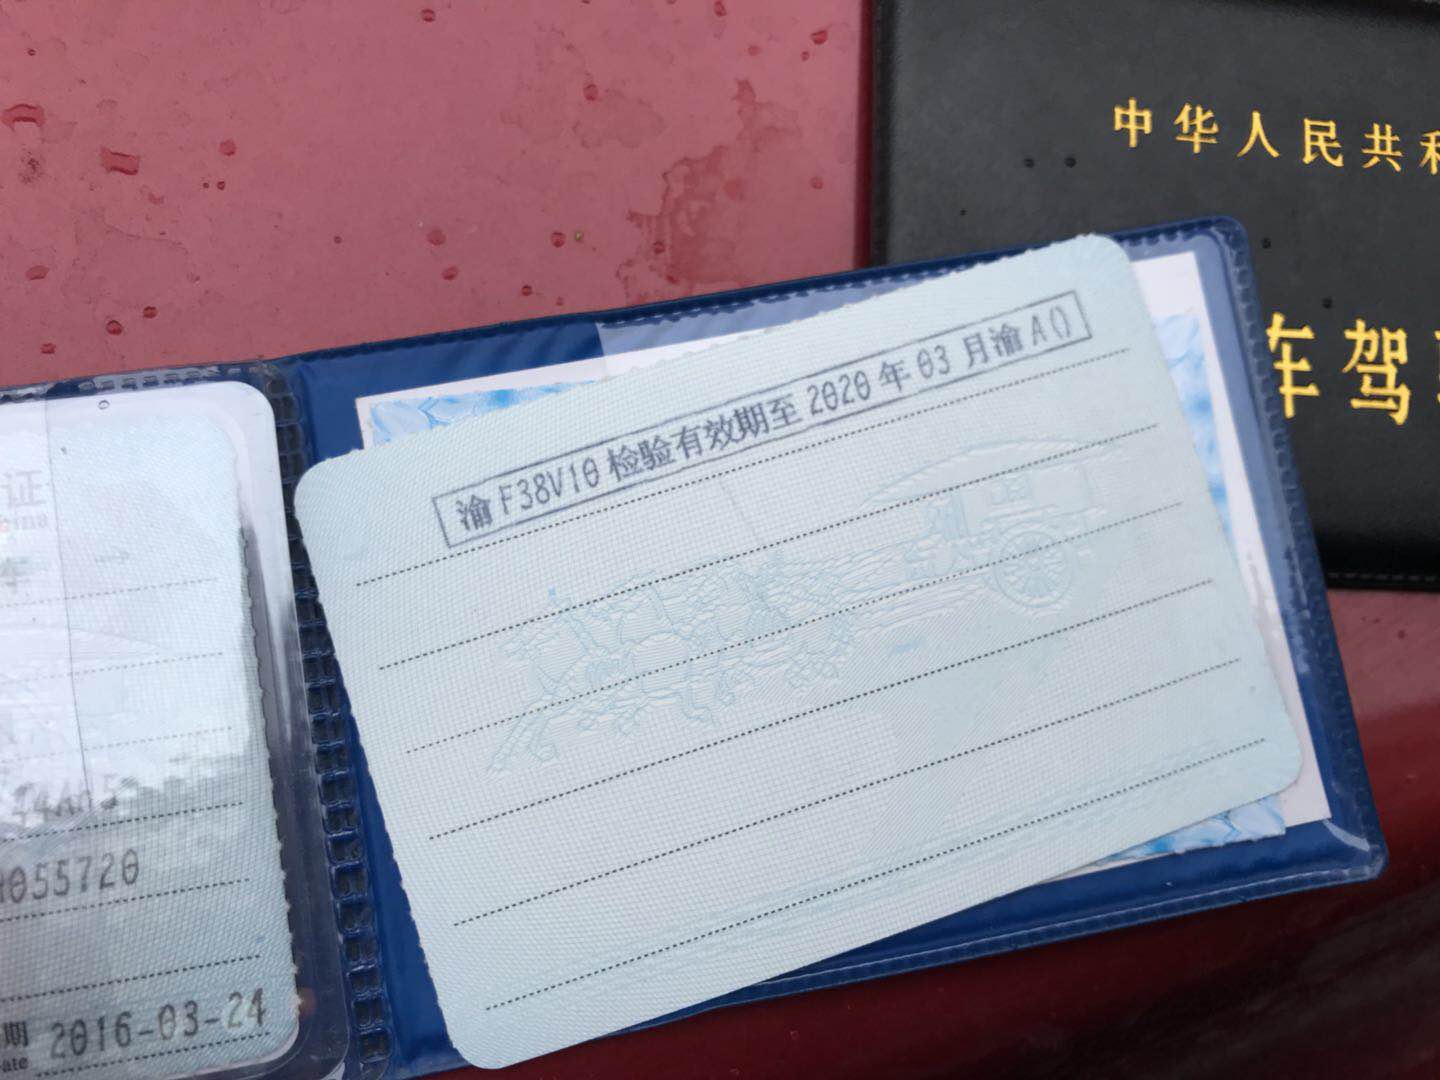 中华人民共
车驾
渝F38V10检验有效期至2020年03月渝A()
证
车
055720
期 2016-03-24